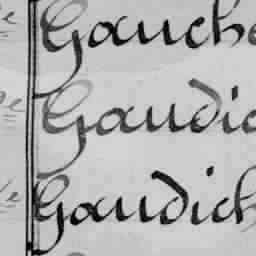 Gauche
Gaudic
Gaudich